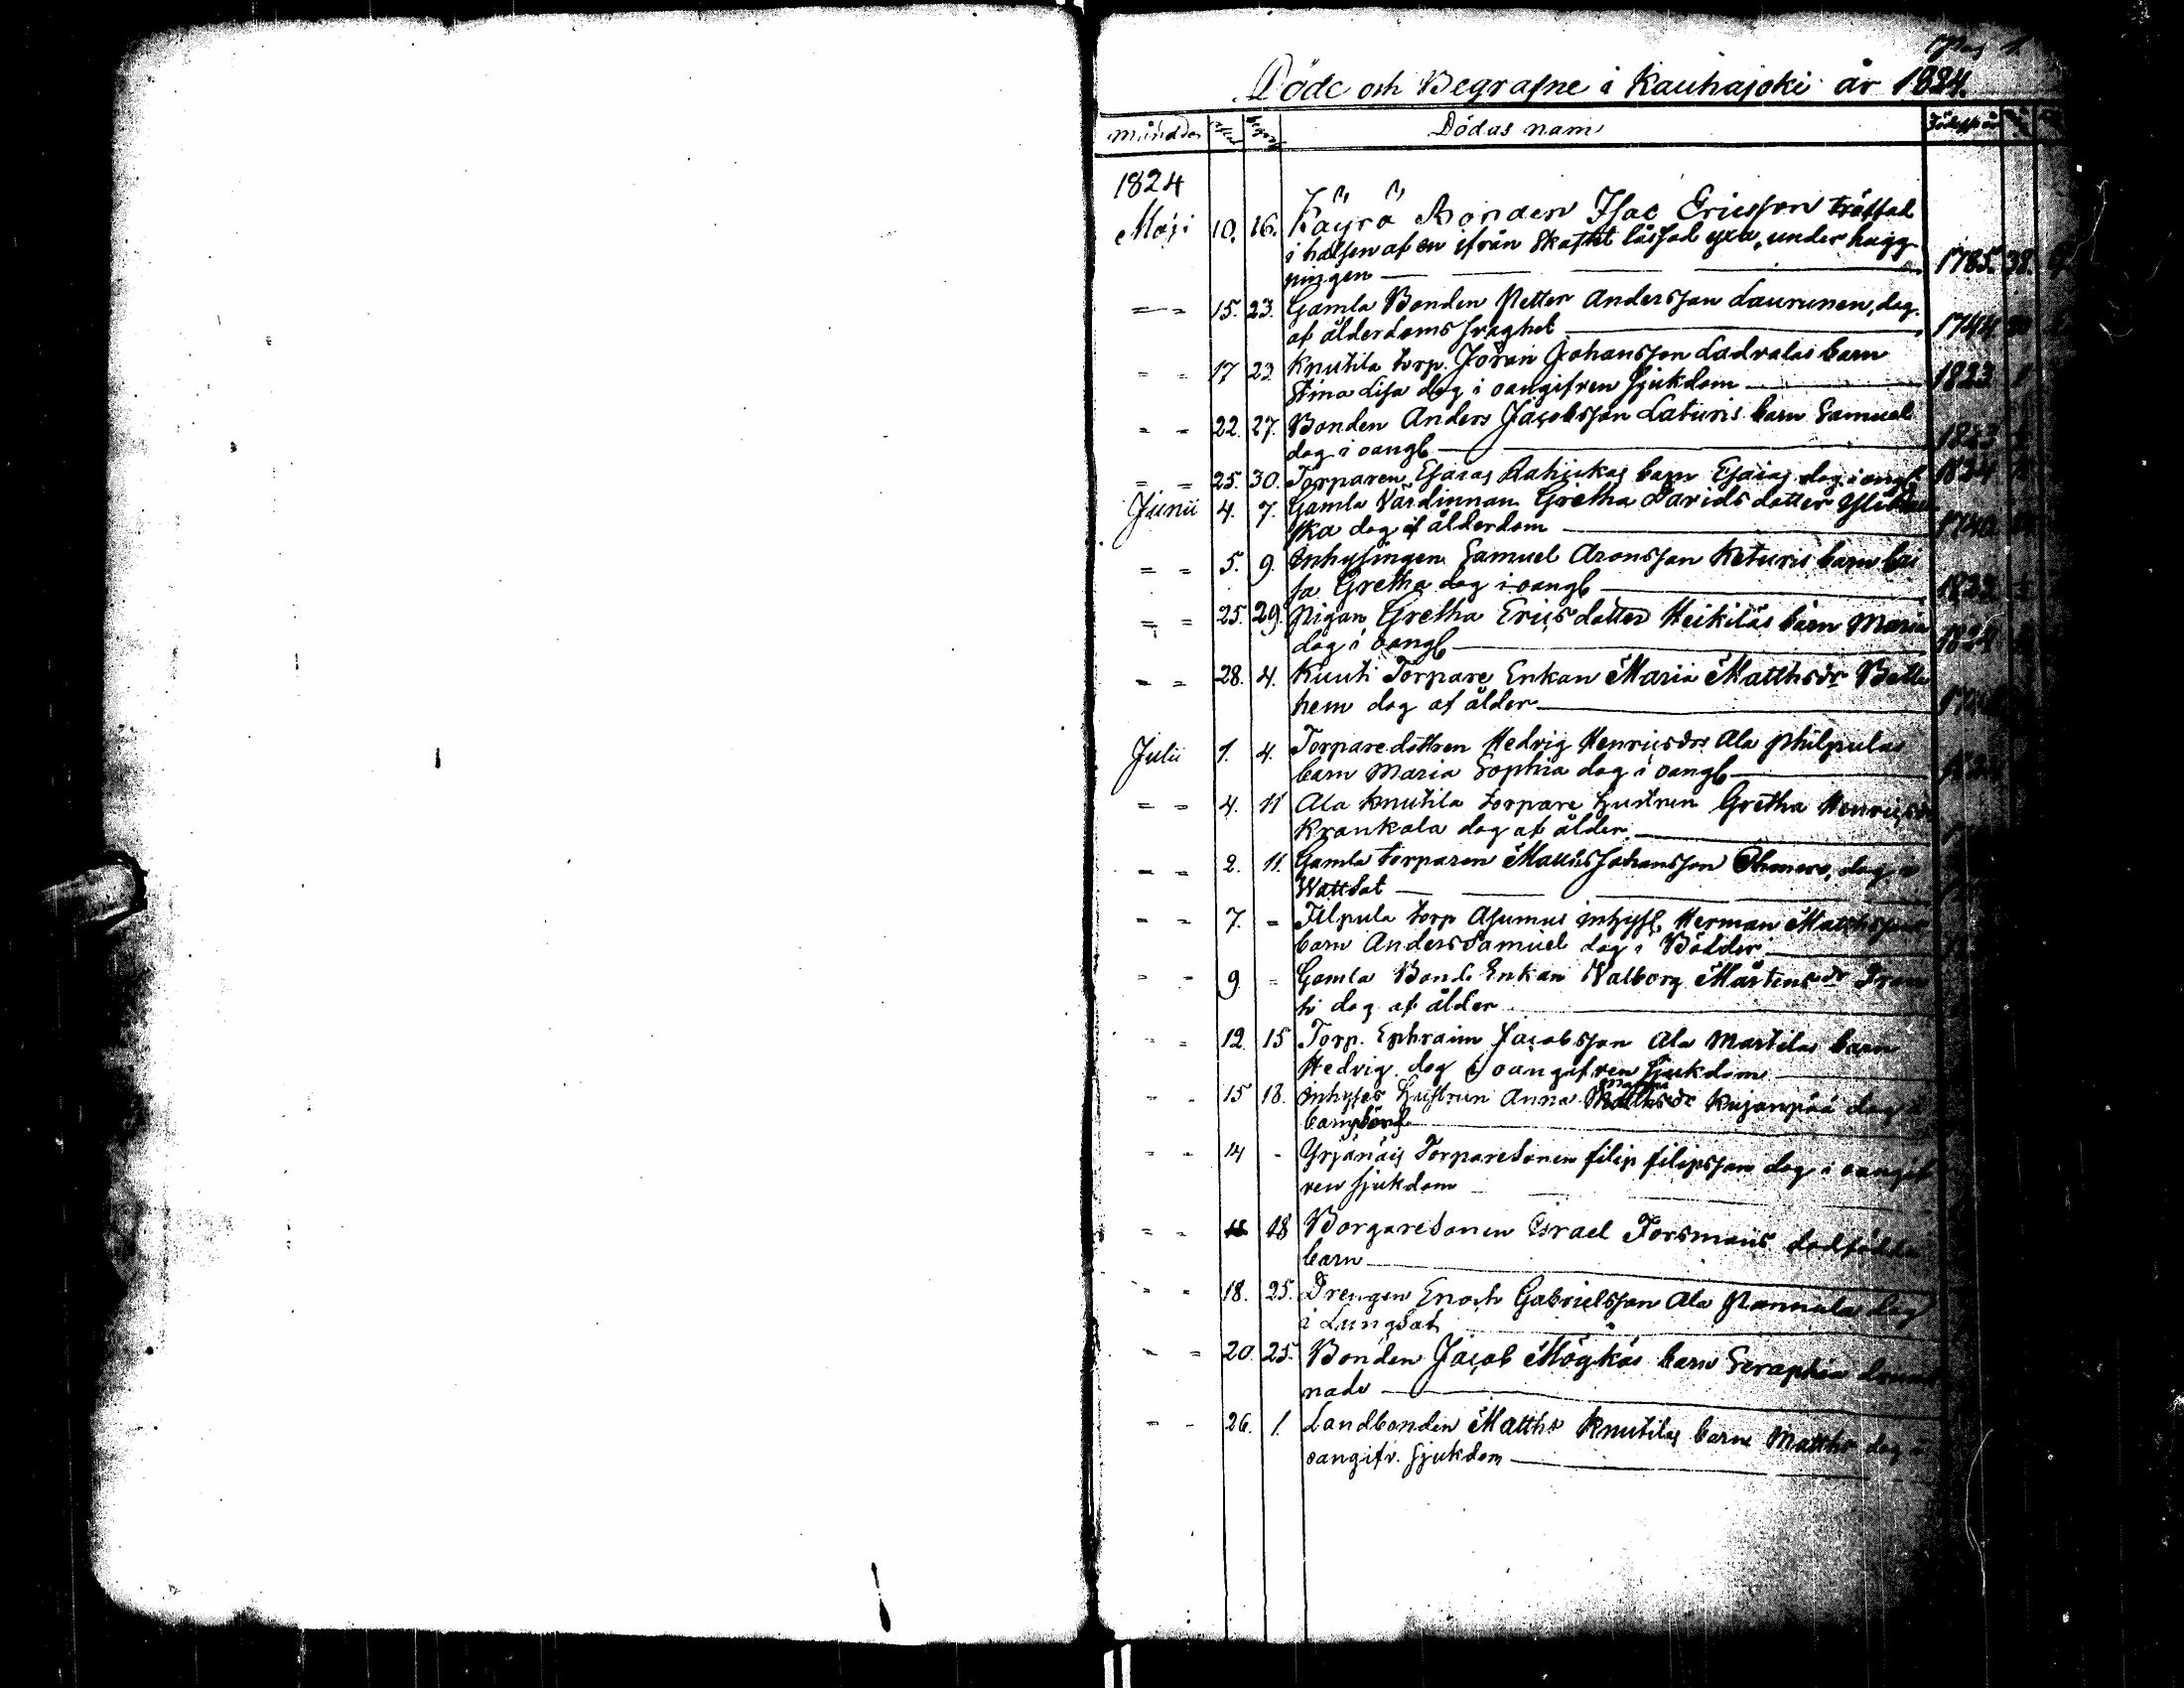 Pag 1.
Döde och Begrafne i Kauhajoki år 1824.
månader Dödas nam Födelseår
1824
Maji 10. 16. Käyrä Bonden Isac Ericsson träffad
i halsen af en ifrån Skaftet låssad yxa, under hugg-
ningen 1785. 38.
= = 15. 23. Gamla Bonden Petter Andersson Laurunen, dog
af ålderdoms sraghet 1744. 80
= = 17 23 Knutila torp. Jöran Johansson Ladvalas barn
Stina Lisa dog i oangifven sjukdom 1823 1
= = 22. 27. Bonden Anders Jacobsson Laturis barn Samuel
dog i oangl 1823
= = 25. 30. Torparen Esaias Rahikas barn Esaias dog i oangl 1824
Junii 4. 7. Gamla Värdinnan Gretha Davids dotter
ska dog af ålderdom 1740
= = 5. 9. Inhysingen Samuel Aronsson Keturis barn Cai
sa Gretha dog i oangl 1823
= = 25. 29. Pigan Gretha Erics dotter Heikiläs barn Maria
dog i oangl 1824
= = 28. 4. Kuuti Torpare Enkan Maria Matthsdr Betle
hem dog af ålder
Julii 1. 4. Torparedottren Hedvig Henricsdrs Ala Philpulas
barn Maria Sophia dog i oangl
= = 4. 11 Ala Knutila torpare hustrun Gretha Henricsdr
Krankala dog af ålder.
= = 2. 11. Gamla torparen Matts Johansson dog i
Wattsot
= = 7. = Filpula torp Asumus inhyss. Herman Matthssons
barn Anders Samuel dog i Bölder
= = 9 = Gamla Bonde Enkan Walborg Mårtensdr
ti dog af ålder
= = 12 15 Torp. Ephraim Jacobsson Ala Martilas barn
Hedvig dog i oangifven sjukdom
= = 15 18. Inhyses Hustrun Anna Matthsdr Kujanpää dog i
barnsbörd
= = 14 - Yrjänäis Torparesonen filip filipsson dog i oangif
ven sjukdom
= = 18 Borgaresonen Israel Forsmans dödfödda
barn
= = 18. 25. Drengen Enoch Gabrielsson Ala Pannula dog
i Lungsot
= = 20. 25. Bonden Jacob Mögkäs barn Seraphia
nade
= = 26. 1. Landbonden Matths Knutilas barn Matths dog i
oangifv. sjukdom